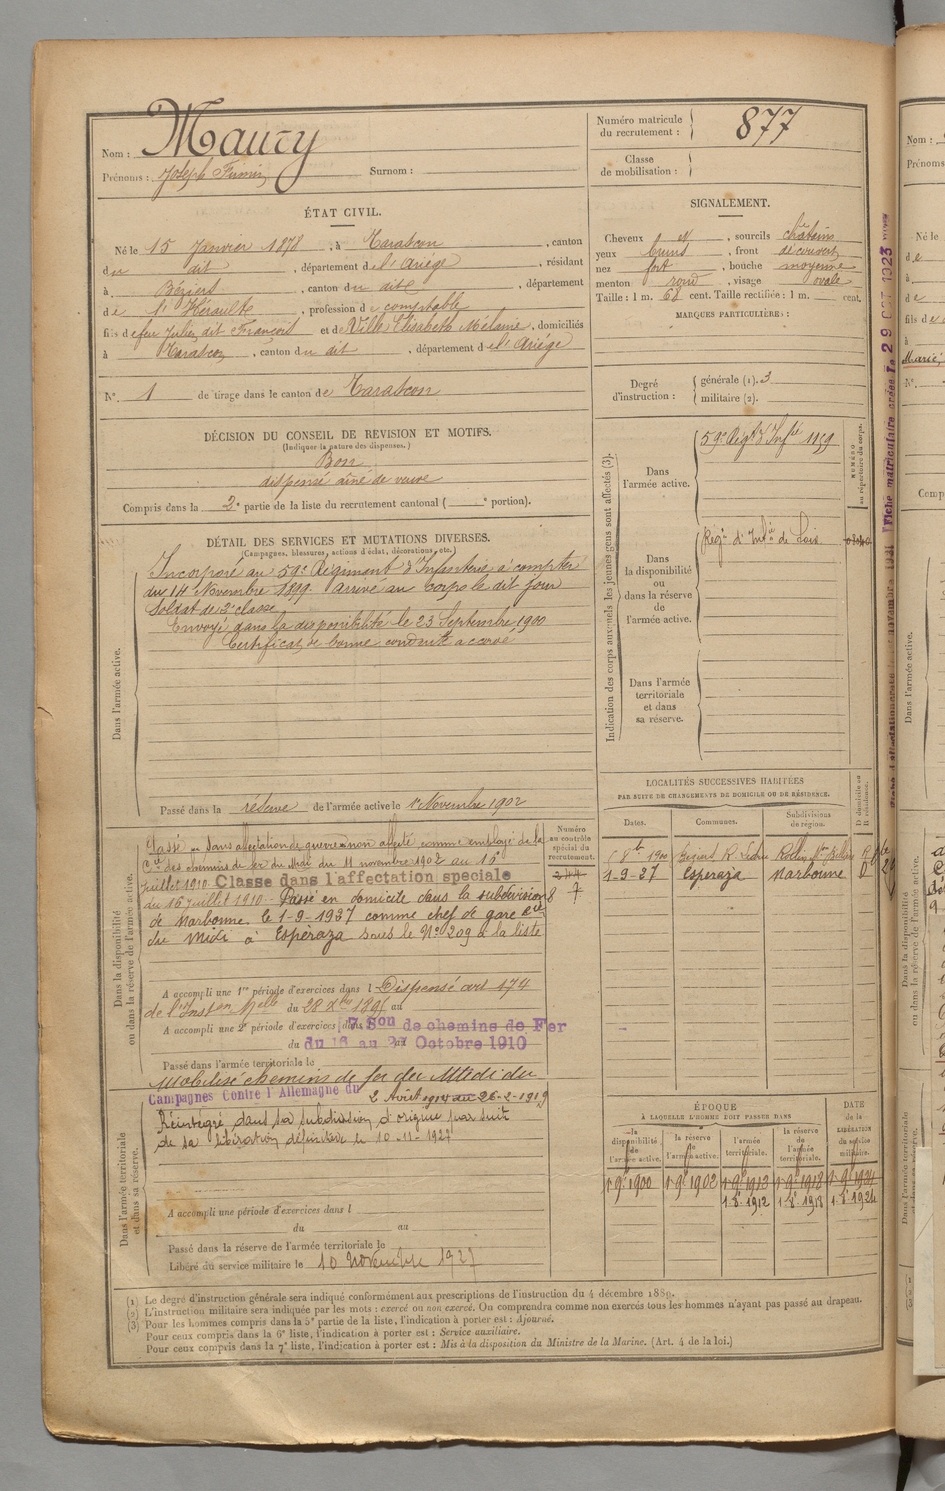 Nom : Maury
Prénoms : Joseph Firmin Surnom :
Numéro matricule du recrutement : 877
Classe de mobilisation :
ÉTAT CIVIL.
Né le 15 Janvier 1878, à Tarascon, canton
du dit, département de l'Ariège, résidant
à Béziers, canton du dit, département
de l'Hérault, profession de comptable
fils de feu Julien dit François et de Ville Elisabeth Mélanie, domiciliés
à Tarascon, canton du dit, département de l'Ariège
N° 1 de tirage dans le canton de Tarascon
SIGNALEMENT.
Cheveux et, sourcils châtains
yeux bruns, front découvert
nez fort, bouche moyenne
menton rond, visage ovale
Taille : 1 m. 68 cent. Taille rectifiée : 1 m. cent.
MARQUES PARTICULIÈRES :
Degré d'instruction : générale (1). 3
militaire (2).
DÉCISION DU CONSEIL DE REVISION ET MOTIFS.
(Indiquer la nature des dispenses.)
Bon
dispensé aîné de veuve
Compris dans la 2e partie de la liste du recrutement cantonal ( e portion).
DÉTAIL DES SERVICES ET MUTATIONS DIVERSES.
(Campagnes, blessures, actions d'éclat, décorations, etc.)
Dans l'armée active.
Incorporé au 59e Régiment d'Infanterie à compter
du 14 Novembre 1899. arrivé au corps le dit jour
Soldat de 2e classe
Envoyé dans la disponibilité le 23 Septembre 1900
Certificat de bonne conduite accordé
Passé dans la réserve de l'armée active le 1er Novembre 1902
Indication des corps auxquels les jeunes gens sont affectés (3).
Dans l'armée active.
59e Régt d'Infie 1899
NUMÉRO au répertoire du corps.
Dans la disponibilité ou dans la réserve de l'armée active.
Régt d'Infie de Foix
Dans l'armée territoriale et dans sa réserve.
Dans la disponibilité ou dans la réserve de l'armée active.
Numéro au contrôle spécial du recrutement.
Passé en Sans affectation de guerre non affecté comme employé de la
Cie des chemins de fer du Midi du 11 novembre 1902 au 15
juillet 1910. Classe dans l'affectation spéciale
du 16 juillet 1910. Passé en domicile dans la subdivision
de Narbonne le 1-9-1927 comme chef de gare Cie
du Midi à Espéraza sous le N° 209 à la liste
A accompli une 1re période d'exercices dans l Dispensé art 174
de l'Inston Melle du 28 Xbre 1895 au
A accompli une 2e période d'exercices dans 7 Son de chemins de Fer
du 16 au 21 Octobre 1910
Passé dans l'armée territoriale le
Mobilisé chemins de fer du Midi du
Campagnes Contre l'Allemagne du 2 Août 1914 au 26-2-1919
Réintégré dans sa subdivision d'origine par suit
de sa libération définitive le 10-11-1927
Dans l'armée territoriale et dans sa réserve.
A accompli une période d'exercices dans l
du au
Passé dans la réserve de l'armée territoriale le
Libéré du service militaire le 10 novembre 1927
LOCALITÉS SUCCESSIVES HABITÉES
PAR SUITE DE CHANGEMENTS DE DOMICILE OU DE RÉSIDENCE.
Dates. Communes. Subdivisions de région. D domicile ou R résidence.
1-9-27 Espéraza Narbonne D
ÉPOQUE
À LAQUELLE L'HOMME DOIT PASSER DANS
DATE de la LIBÉRATION du service militaire.
la disponibilité de l'armée active. la réserve de l'armée active. l'armée territoriale. la réserve de l'armée territoriale.
1er 9bre 1900 1er 9bre 1902 1er 9bre 1913 1er 9bre 1918 1er 9bre 1924
1.8bre 1912 1.8bre 1918 1.8bre 1924
(1) Le degré d'instruction générale sera indiqué conformément aux prescriptions de l'instruction du 4 décembre 1889.
(2) L'instruction militaire sera indiquée par les mots : exercé ou non exercé. On comprendra comme non exercés tous les hommes n'ayant pas passé au drapeau.
(3) Pour les hommes compris dans la 5e partie de la liste, l'indication à porter est : Ajourné.
Pour ceux compris dans la 6e liste, l'indication à porter est : Service auxiliaire.
Pour ceux compris dans la 7e liste, l'indication à porter est : Mis à la disposition du Ministre de la Marine. (Art. 4 de la loi.)